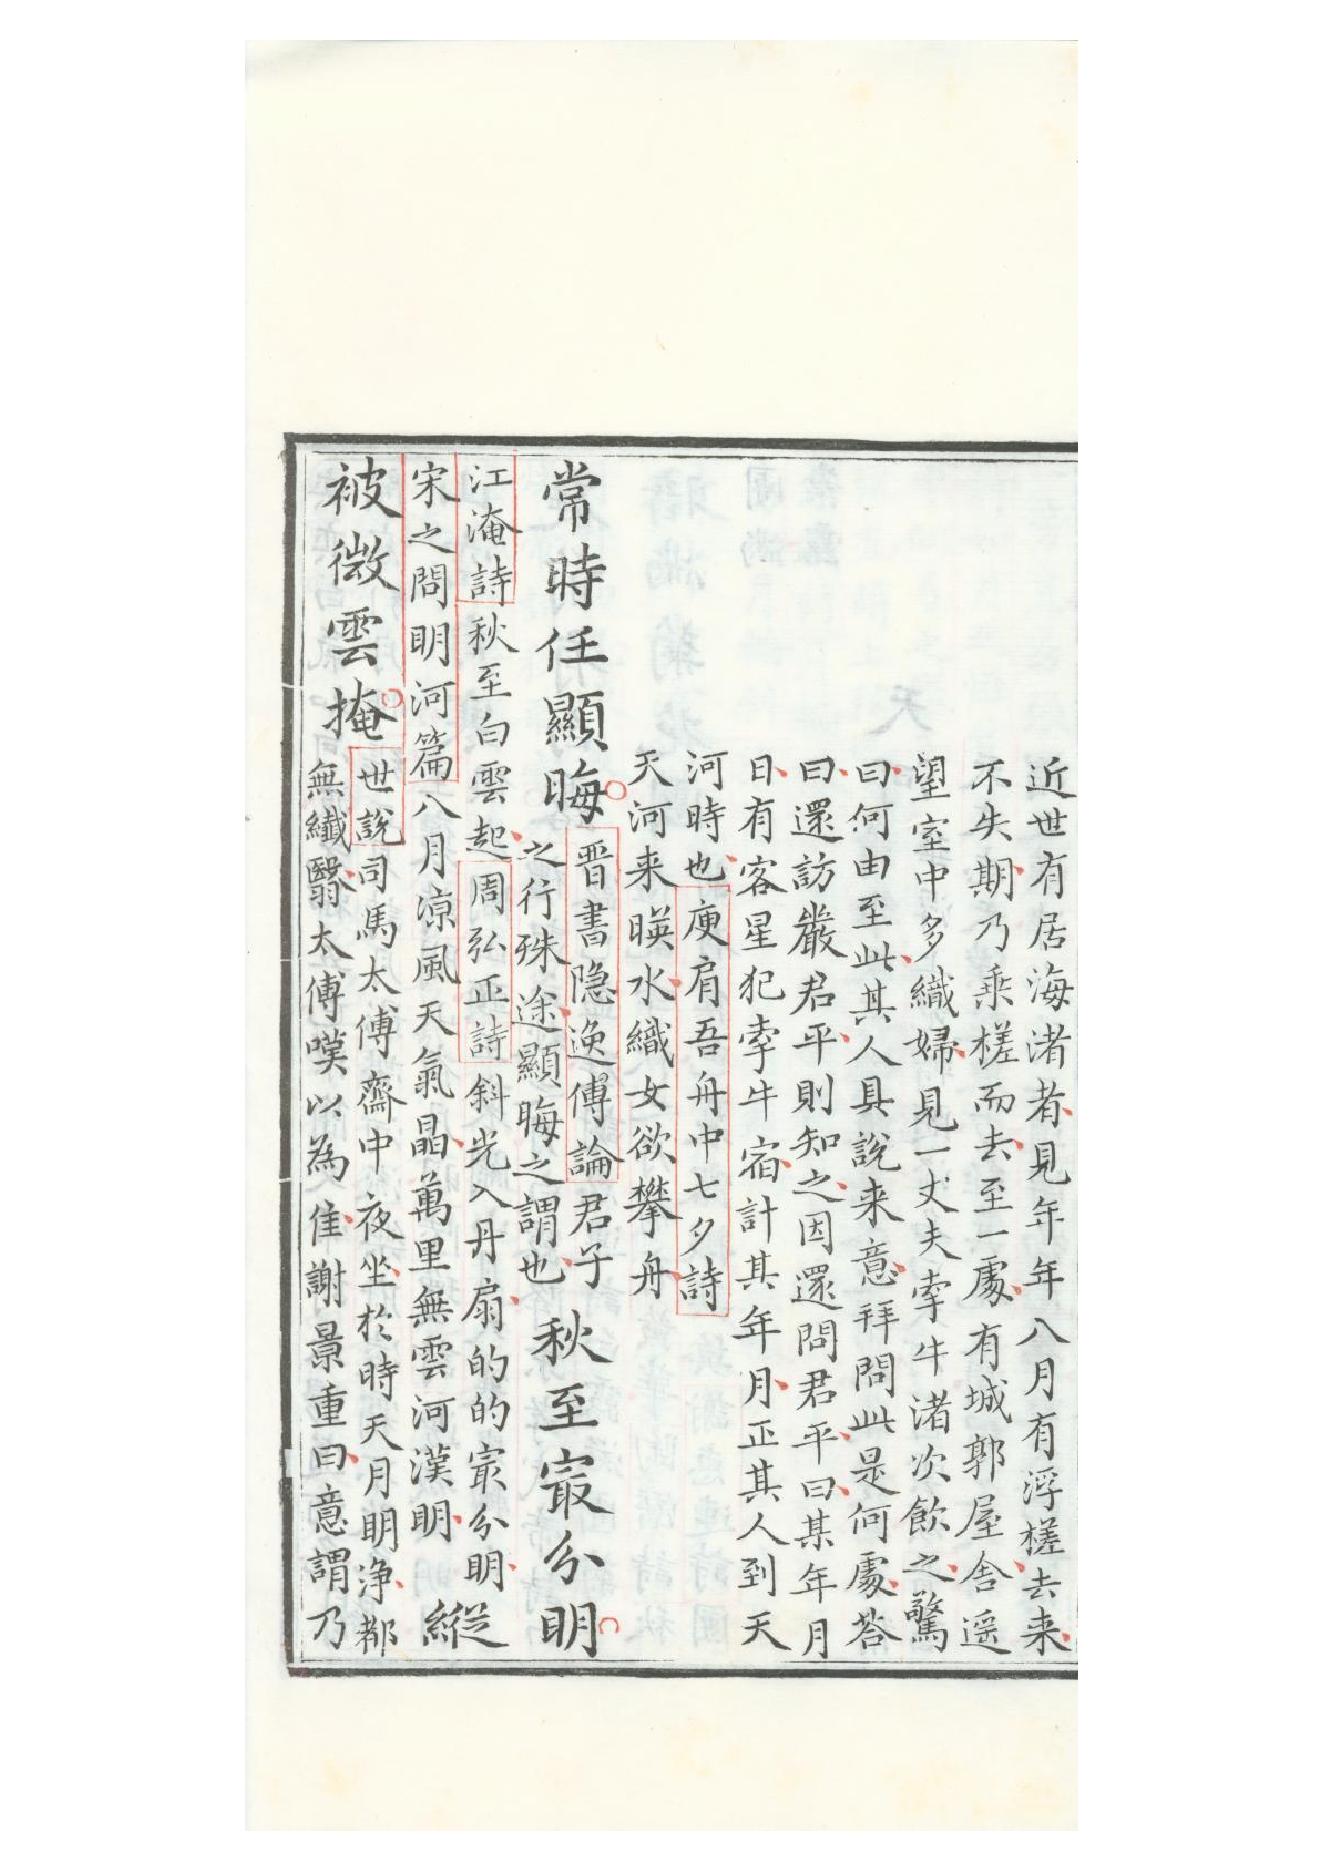 近世有居海渚者見年年八月有浮槎去来
不失期乃乗槎而去至一處有城郭屋舎遥
望室中多織婦見一丈夫牽牛渚次飲之驚
曰何由至此其人具說来意拜問此是何處荅
曰還訪嚴君平則知之因還問君平曰某年月
日有客星犯牽牛宿計其年月正其人到天
河時也庾肩吾舟中七夕詩
天河来暎水織女欲攀舟
常時任顯晦
晉書隐逸傳論君子
之行殊途顯晦之謂也
秋至㝡分明
江淹詩秋至白雲起周弘正詩斜光入丹扇的的㝡分明
宋之問明河篇八月凉風天氣晶萬里無雲河漢明
縱
被微雲掩
世說司馬太傅齋中夜坐於時天月明浄都
無纖翳太傅嘆以為佳謝景重曰意謂乃